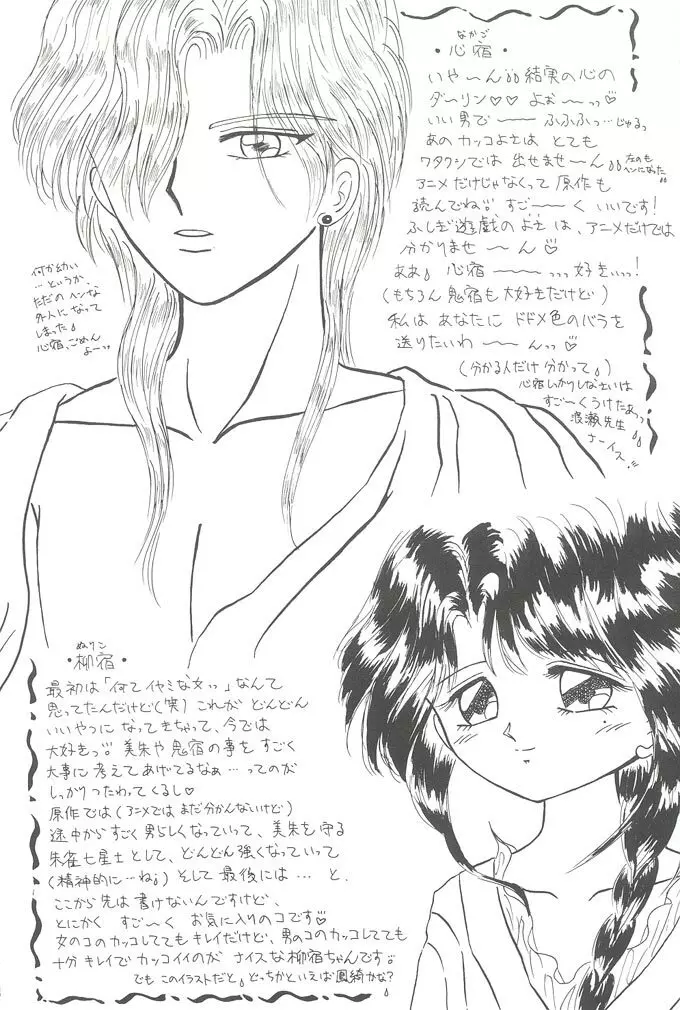 なかご
・心宿・
いや〜ん 結実の心の
ダ〜リン♡♡ よぉ〜〜っ♡
いい男で〜〜 ふふふっ…じゅるっ
あの カッコよさは とても
ワタクシでは 出せませ〜ん
左のも
ヘンになった
アニメだけじゃなくって 原作も
読んでね すご〜〜く いいです!
ふしぎ遊戯のよさ は、アニメだけでは
分かりませ 〜 ん♡
ああ 心宿 〜〜〜っっっ 好きぃっ!
(もちろん 鬼宿も 大好きだけど)
私は あなたに ドドメ色のバラを
送りたいわ 〜〜んっっ♡
(分かる人だけ 分かって)
心宿しかりしなさいは
すご〜くうけたぁっっ
渡瀬先生
ナーイス!!
何か幼い
…というか、
ただの ヘンな
外人に なって
しまった
心宿、ごめん
よーっ
ぬりこ
・柳宿・
最初は「何て イヤミな女っっ」なんて
思ってたんだけど(笑) これが どんどん
いいやつに なってきちゃって、今では
大好きっ 美朱や 鬼宿の事を すごく
大事に 考えて あげてるなぁ … ってのが
しっかり つたわって くるし♡
原作では(アニメでは まだ分かんないけど)
途中から すごく 男らしくなっていって、美朱を守る
朱雀七星士 として、どんどん強くなっていって
(精神的に…ね) そして 最後には … と、
ここから 先は 書けないんですけど、
とにかく すご〜く お気に入りのコです♡
女のコのカッコしてても キレイだけど、男のコのカッコしてても
十分 キレイで カッコイイのが ナイスな 柳宿ちゃんです
でも このイラストだと、どっちかといえば 鳳綺かな?